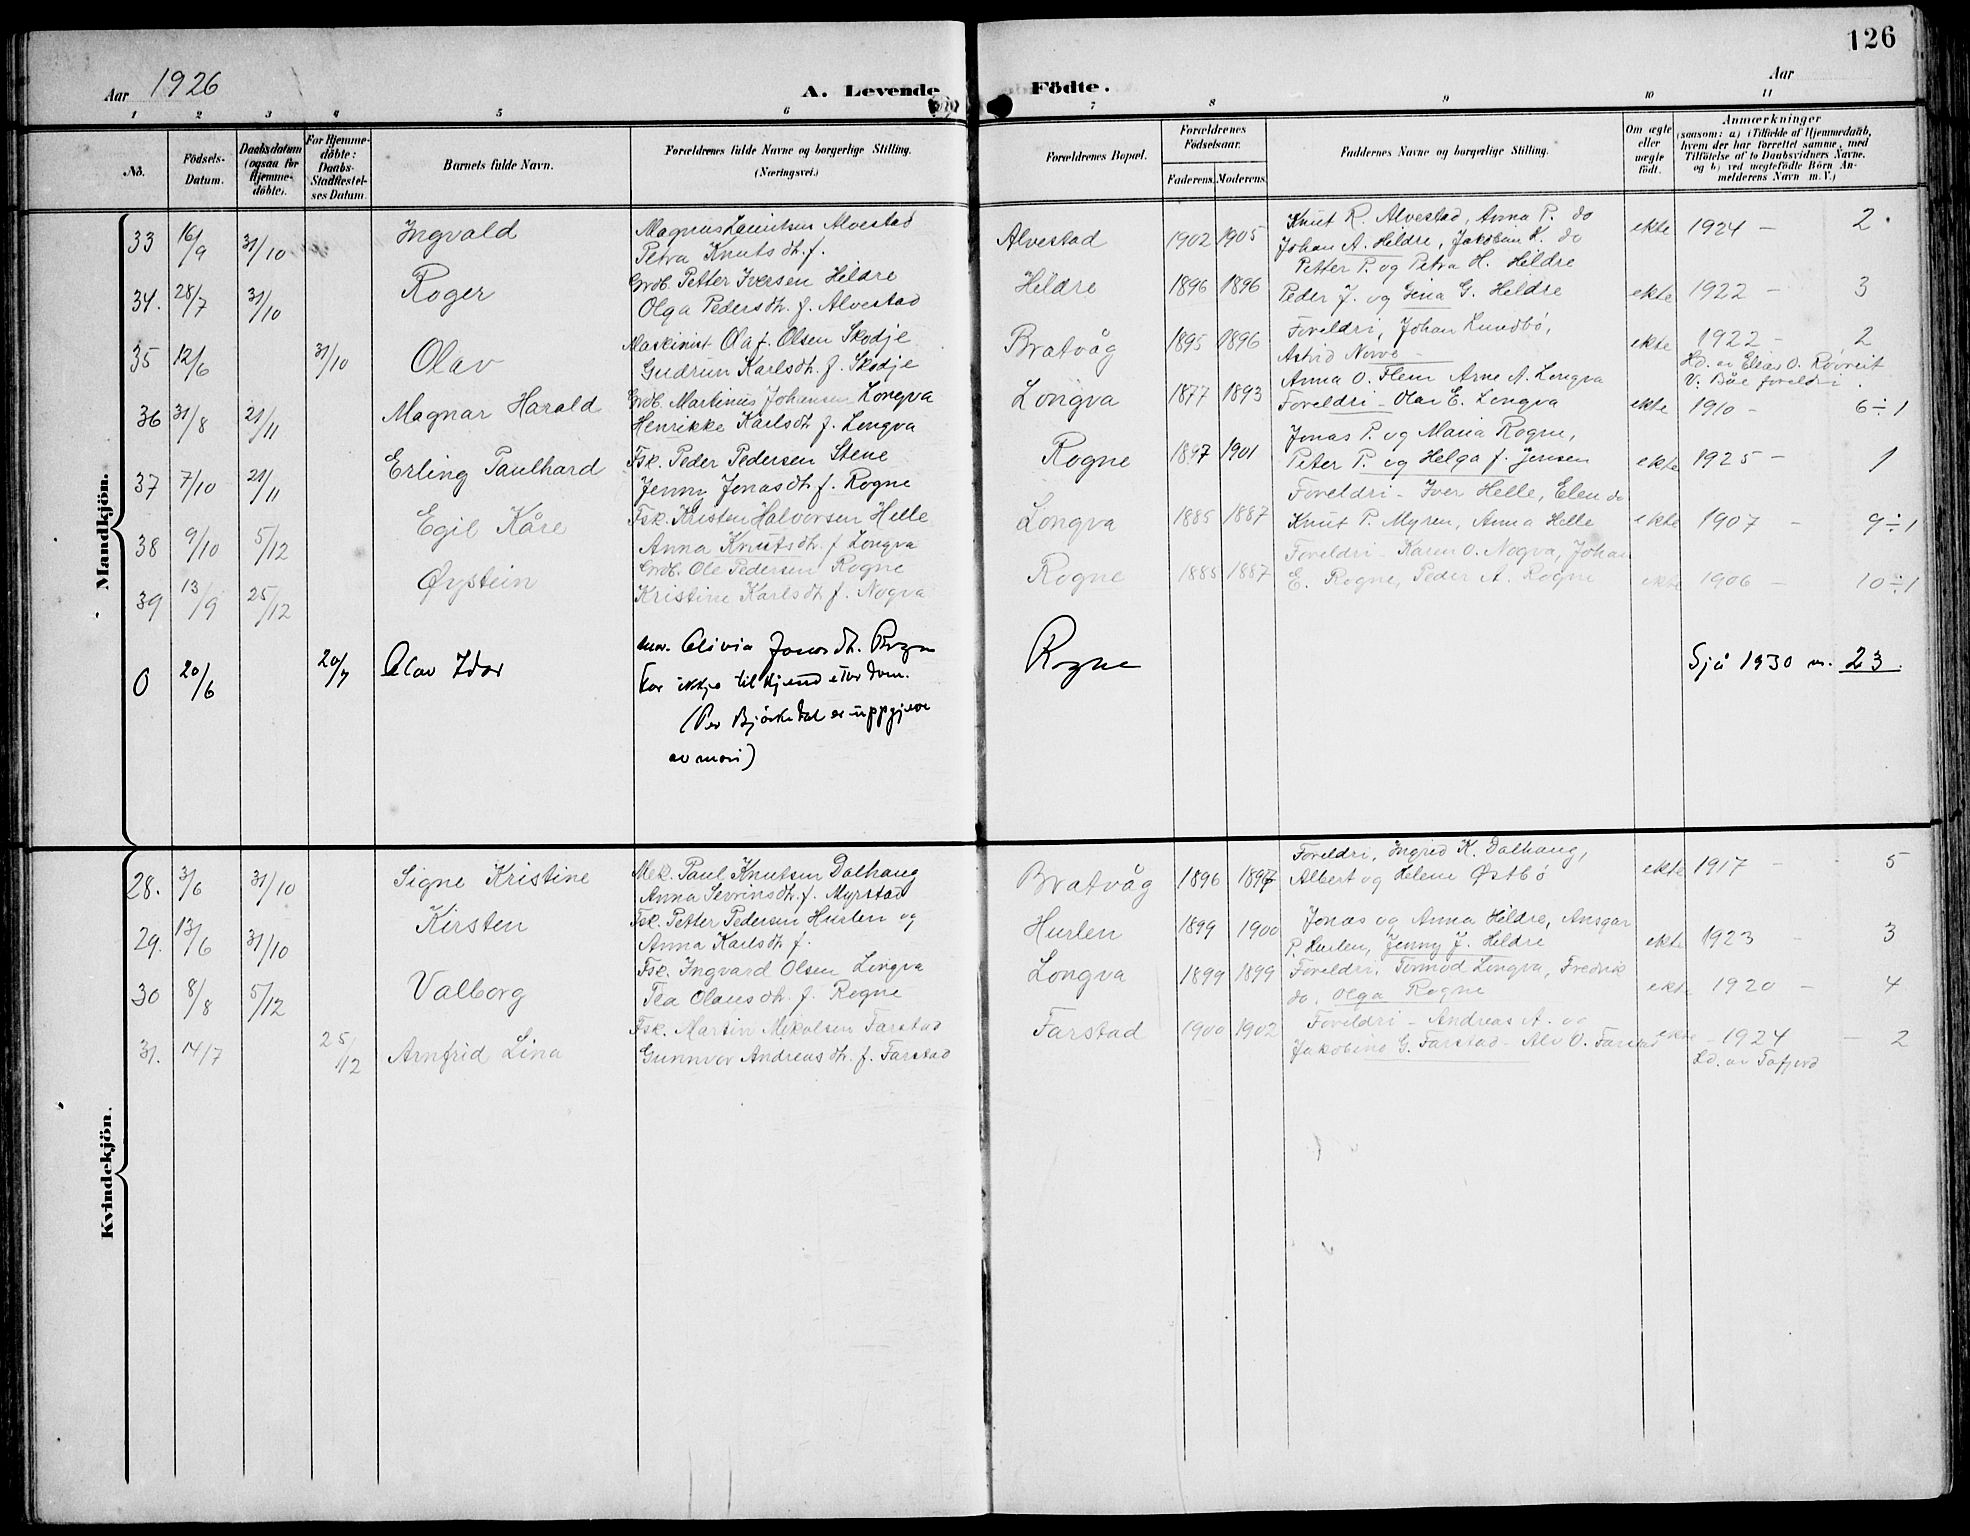 126
Aar 1926
A. Levende Födte.
Aar
1 2 3 4 5 6 7 8 9 10 11
No.
Födsels-Datum.
Daabsdatum (ogsaa for Hjemme-döbte).
For Hjemme-döbte: Daabs-Stadfæstel-ses Datum.
Barnets fulde Navn.
Forældrenes fulde Navne og borgerlige Stilling.
(Næringsvei.)
Forældrenes Bopæl.
Forældrenes Födselsaar.
Faderens. Moderens.
Faddernes Navne og borgerlige Stilling.
Om ægte eller uægte födt.
Anmærkninger
(saasom: a) i Tilfælde af Hjemmedaab, hvem der har forrettet samme, med Tilföielse af to Daabsvidners Navne, og b) ved uægtefödte Börn An-melderens Navn m.V.)
Mandkjön.
33 16/9 31/10 Ingvald Magnus Lauritsen Alvestad Alvestad 1902 1905 Knut R. Alvestad, Anna P. do ekte 1924 - 2
Petra Knutsdt. f. Johan A. Hildre, Jakobina K. do
34. 28/7 31/10 Roger Grdb. Petter Iversen Hildre Hildre 1896 1896 Petter P. og Petra H. Hildre ekte 1922 - 3
Olga Pedersdt. f. Alvestad Peder J. og Gina G. Hildre
35 12/6 31/10 Olav Maskinist Olaf Olsen Skodje Bratvåg 1895 1896 Foreldri, Johan Lundbö, ekte 1922 - 2
Gudrun Karlsdt. f. Skodje Astrid Norve Hd. av Elias O. Røvreit
V. Bäe foreldri.
36 31/8 21/11 Magnar Harald Grdb. Martinus Johansen Longva Longva 1877 1893 Anna O. Flem Arne A. Longva ekte 1910 - 6÷1
Henrikke Karlsdt f. Longva Foreldri - Olav E. Longva
37 7/10 21/11 Erling Paulhard Fsk. Peder Pedersen Stene Rogne 1897 1901 Jonas P. og Maria Rogne, ekte 1925 - 1
Jenny Jonasdt f. Rogne Peter P. og Helga f. Jensen
38 9/10 5/12 Egil Kåre Fsk. Kristen Halvorsen Helle Longva 1885 1887 Foreldri - Iver Helle, Elen do ekte 1907 - 9÷1
Anna Knutsdt. f Longva Knut P. Myren, Anna Helle
39 13/9 25/12 Øystein Grdb. Ole Pedersen Rogne Rogne 1885 1887 Foreldri - Karen O. Nogva, Johan ekte 1906 - 10÷1
Kristine Karlsdt f. Nogva E. Rogne, Peder A. Rogne
0 20/6 20/7 Olav Idar mor. Olivia Jonasdt. Rogne Rogne Sjå 1930 n. 23.
Far ikkje tilkjend etter dom.
(Per Bjørkedal er uppgjeve
av mori)
Kvindekjön.
28. 3/6 31/10 Signe Kristine Mek. Paul Knutsen Dalhaug Bratvåg 1896 1897 Foreldri, Ingrid K. Dalhaug, ekte 1917 - 5
Anna Sevrinsdt. f. Myrstad Albert og Helene Østbö
29. 13/6 31/10 Kirsten Fsk. Petter Pedersen Hurlen og Hurlen 1899 1900 Jonas og Anna Hildre, Ansgar ekte 1923 - 3
Anna Karlsdt f. P. Hurlen, Jenny J. Hildre
30 8/8 5/12 Valborg Fsk. Ingvard Olsen Longva Longva 1899 1899 Foreldri, Tormod Longva, Fredrik ekte 1920 - 4
Tea Olausdt. f. Rogne do, Olga Rogne
31. 14/7 25/12 Arnfrid Lina Fsk. Martin Mikalsen Farstad Farstad 1900 1902 Foreldri - Andreas A. og ekte 1924 - 2
Gunnvor Andreasdt. f. Farstad Jakobine G. Farstad - Alv O. Farstad Hd. av Tafjord